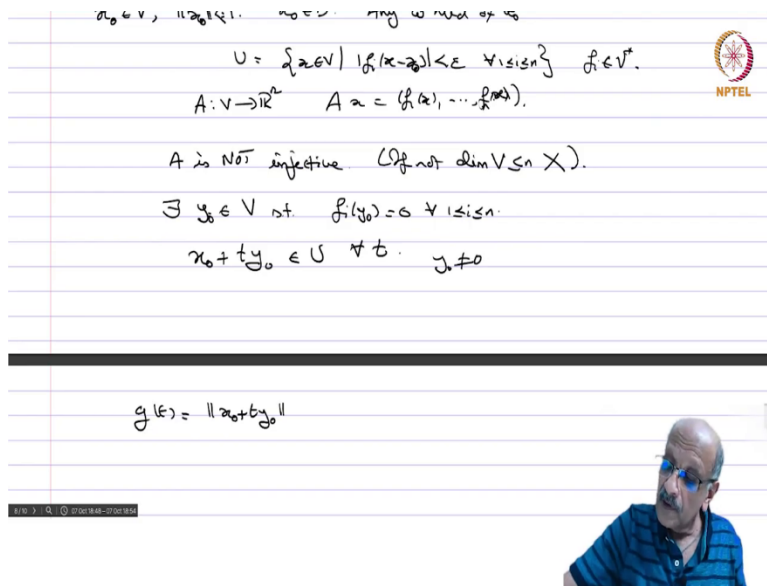 x₀ ∈ V, ‖x₀‖<1. x₀ ∈ Any w
U = {x∈V | |fᵢ(x-x₀)|<ε ∀1≤i≤n} fᵢ∈V*.
NPTEL
A: V→ℝⁿ A x = (f₁(x), ... fₙ(x)).
A is NOT injective (If not dim V ≤ n X).
∃ y₀ ∈ V s.t. fᵢ(y₀)=0 ∀ 1≤i≤n.
x₀ + ty₀ ∈ U ∀ t. y₀ ≠ 0
g(t) = ‖x₀+ty₀‖
8/10 07 Oct 18:48–07 Oct 18:54